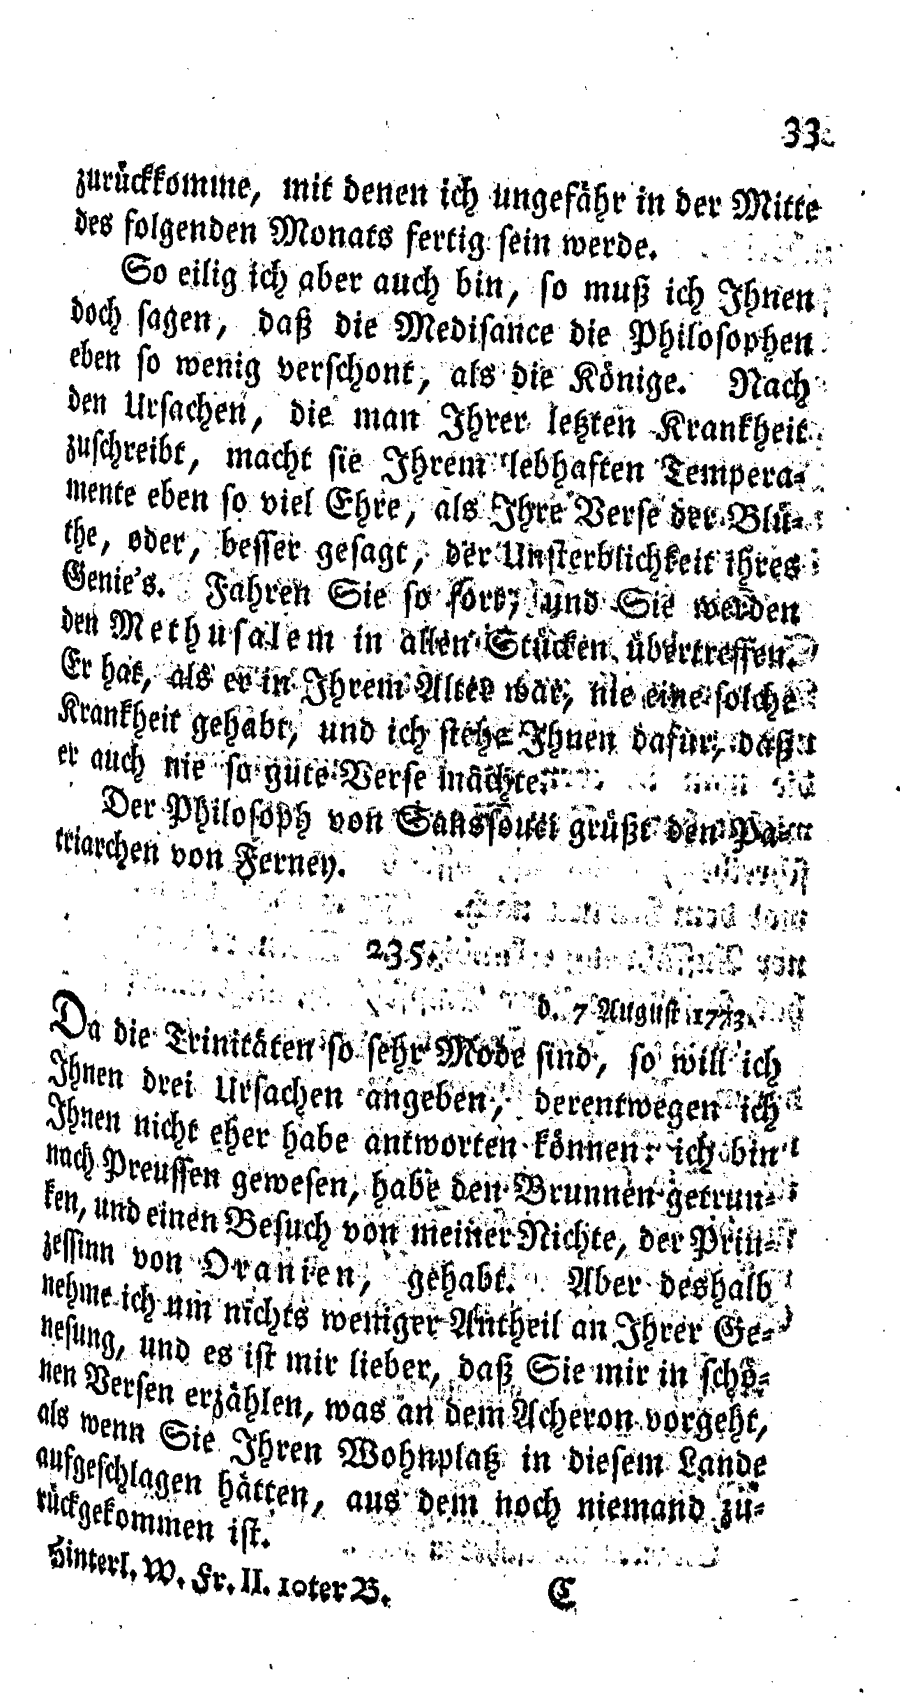 33
zurückkomme, mit denen ich ungefähr in der Mitte
des folgenden Monats fertig sein werde.
So eilig ich aber auch bin, so muß ich Ihnen
doch sagen, daß die Medisance die Philosophen
eben so wenig verschont, als die Könige. Nach
den Ursachen, die man Ihrer letzten Krankheit
zuschreibt, macht sie Ihrem lebhaften Tempera-
mente eben so viel Ehre, als Ihre Verse der Blü-
the, oder, besser gesagt, der Unsterblichkeit ihres
Genie's. Fahren Sie so fort, und Sie werden
den Methusalem in allen Stücken übertreffen.
Er hat, als er in Ihrem Alter war, nie eine solche
Krankheit gehabt, und ich stehe Ihnen dafür, daß
er auch nie so gute Verse machte.
Der Philosoph von Sanssouci grüßt den Pa-
triarchen von Ferney.
235.
d. 7 August 1773.
Da die Trinitäten so sehr Mode sind, so will ich
Ihnen drei Ursachen angeben, derentwegen ich
Ihnen nicht eher habe antworten können: ich bin
nach Preussen gewesen, habe den Brunnen getrun-
ken, und einen Besuch von meiner Nichte, der Prin-
zessinn von Oranien, gehabt. Aber deshalb
nehme ich um nichts weniger Antheil an Ihrer Ge-
nesung, und es ist mir lieber, daß Sie mir in schö-
nen Versen erzählen, was an dem Acheron vorgeht,
als wenn Sie Ihren Wohnplatz in diesem Lande
aufgeschlagen hätten, aus dem noch niemand zu-
rückgekommen ist.
Hinterl. W. Fr. II. 10ter B. C